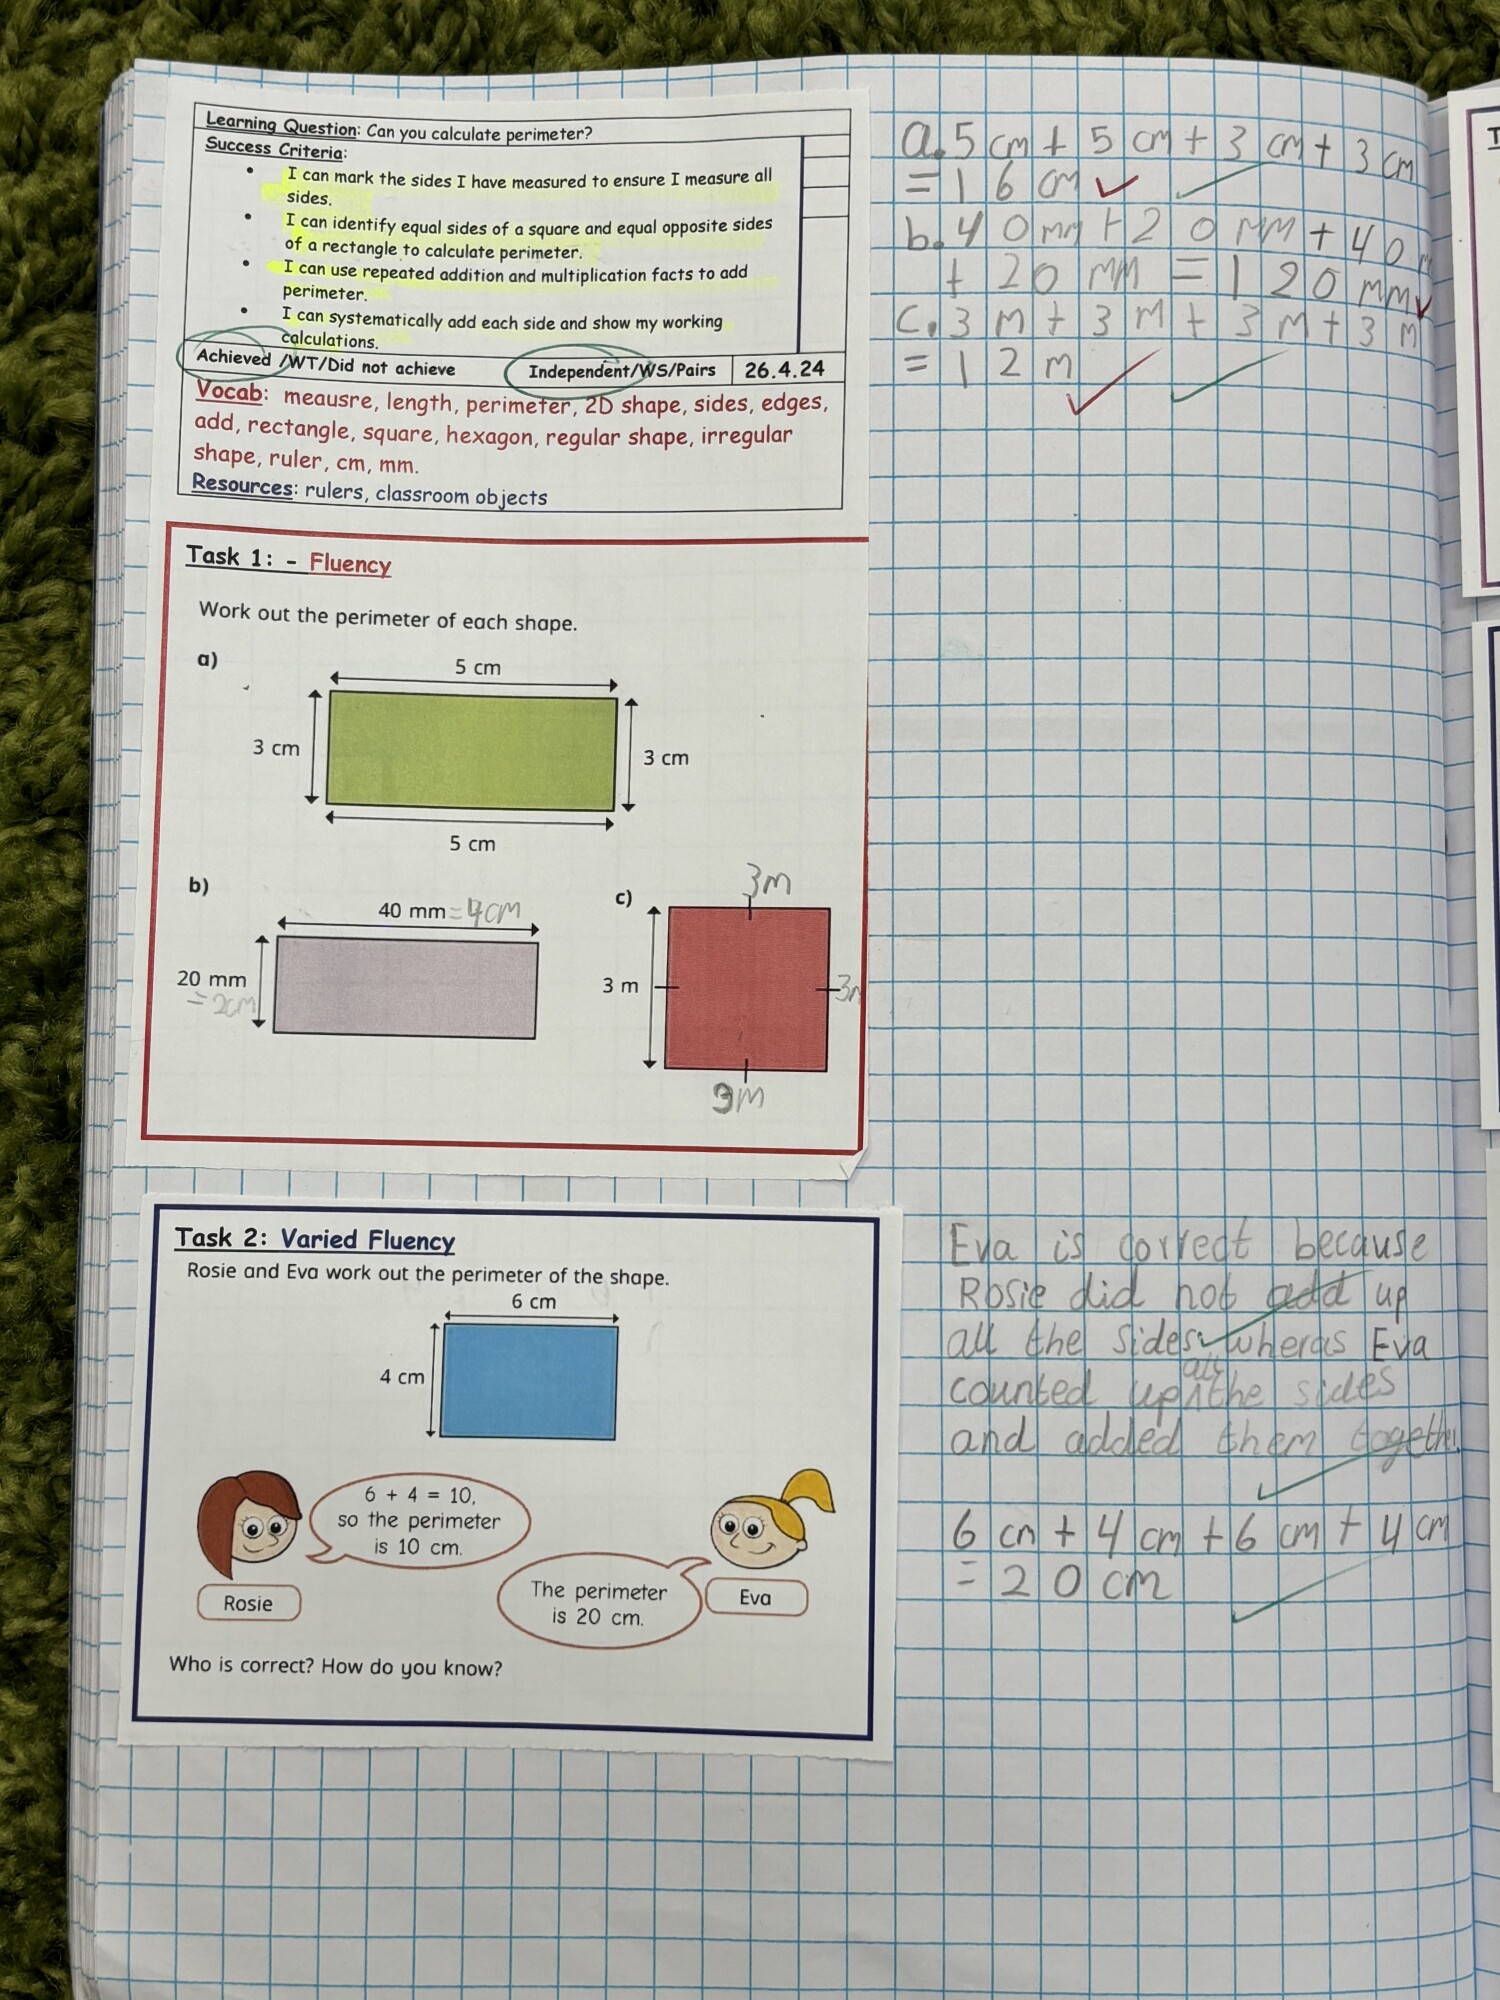 Learning Question: Can you calculate perimeter?
Success Criteria:
• I can mark the sides I have measured to ensure I measure all
sides.
• I can identify equal sides of a square and equal opposite sides
of a rectangle to calculate perimeter.
• I can use repeated addition and multiplication facts to add
perimeter.
• I can systematically add each side and show my working
calculations.
Achieved /WT/Did not achieve Independent/WS/Pairs 26.4.24
Vocab: meausre, length, perimeter, 2D shape, sides, edges,
add, rectangle, square, hexagon, regular shape, irregular
shape, ruler, cm, mm.
Resources: rulers, classroom objects
a. 5 cm + 5 cm + 3 cm + 3 cm
= 16 cm
b. 40 mm + 20 mm + 40
+ 20 mm = 120 mm
c. 3 m + 3 m + 3 m + 3 m
= 12 m
Task 1: - Fluency
Work out the perimeter of each shape.
a)
5 cm
3 cm
3 cm
5 cm
b)
40 mm = 4cm
20 mm
= 2cm
c)
3m
3 m
3m
3m
Task 2: Varied Fluency
Rosie and Eva work out the perimeter of the shape.
6 cm
4 cm
6 + 4 = 10,
so the perimeter
is 10 cm.
Rosie
The perimeter
is 20 cm.
Eva
Who is correct? How do you know?
Eva is correct because
Rosie did not add up
all the sides wheras Eva
counted up all the sides
and added them
6 cm + 4 cm + 6 cm + 4 cm
= 20 cm